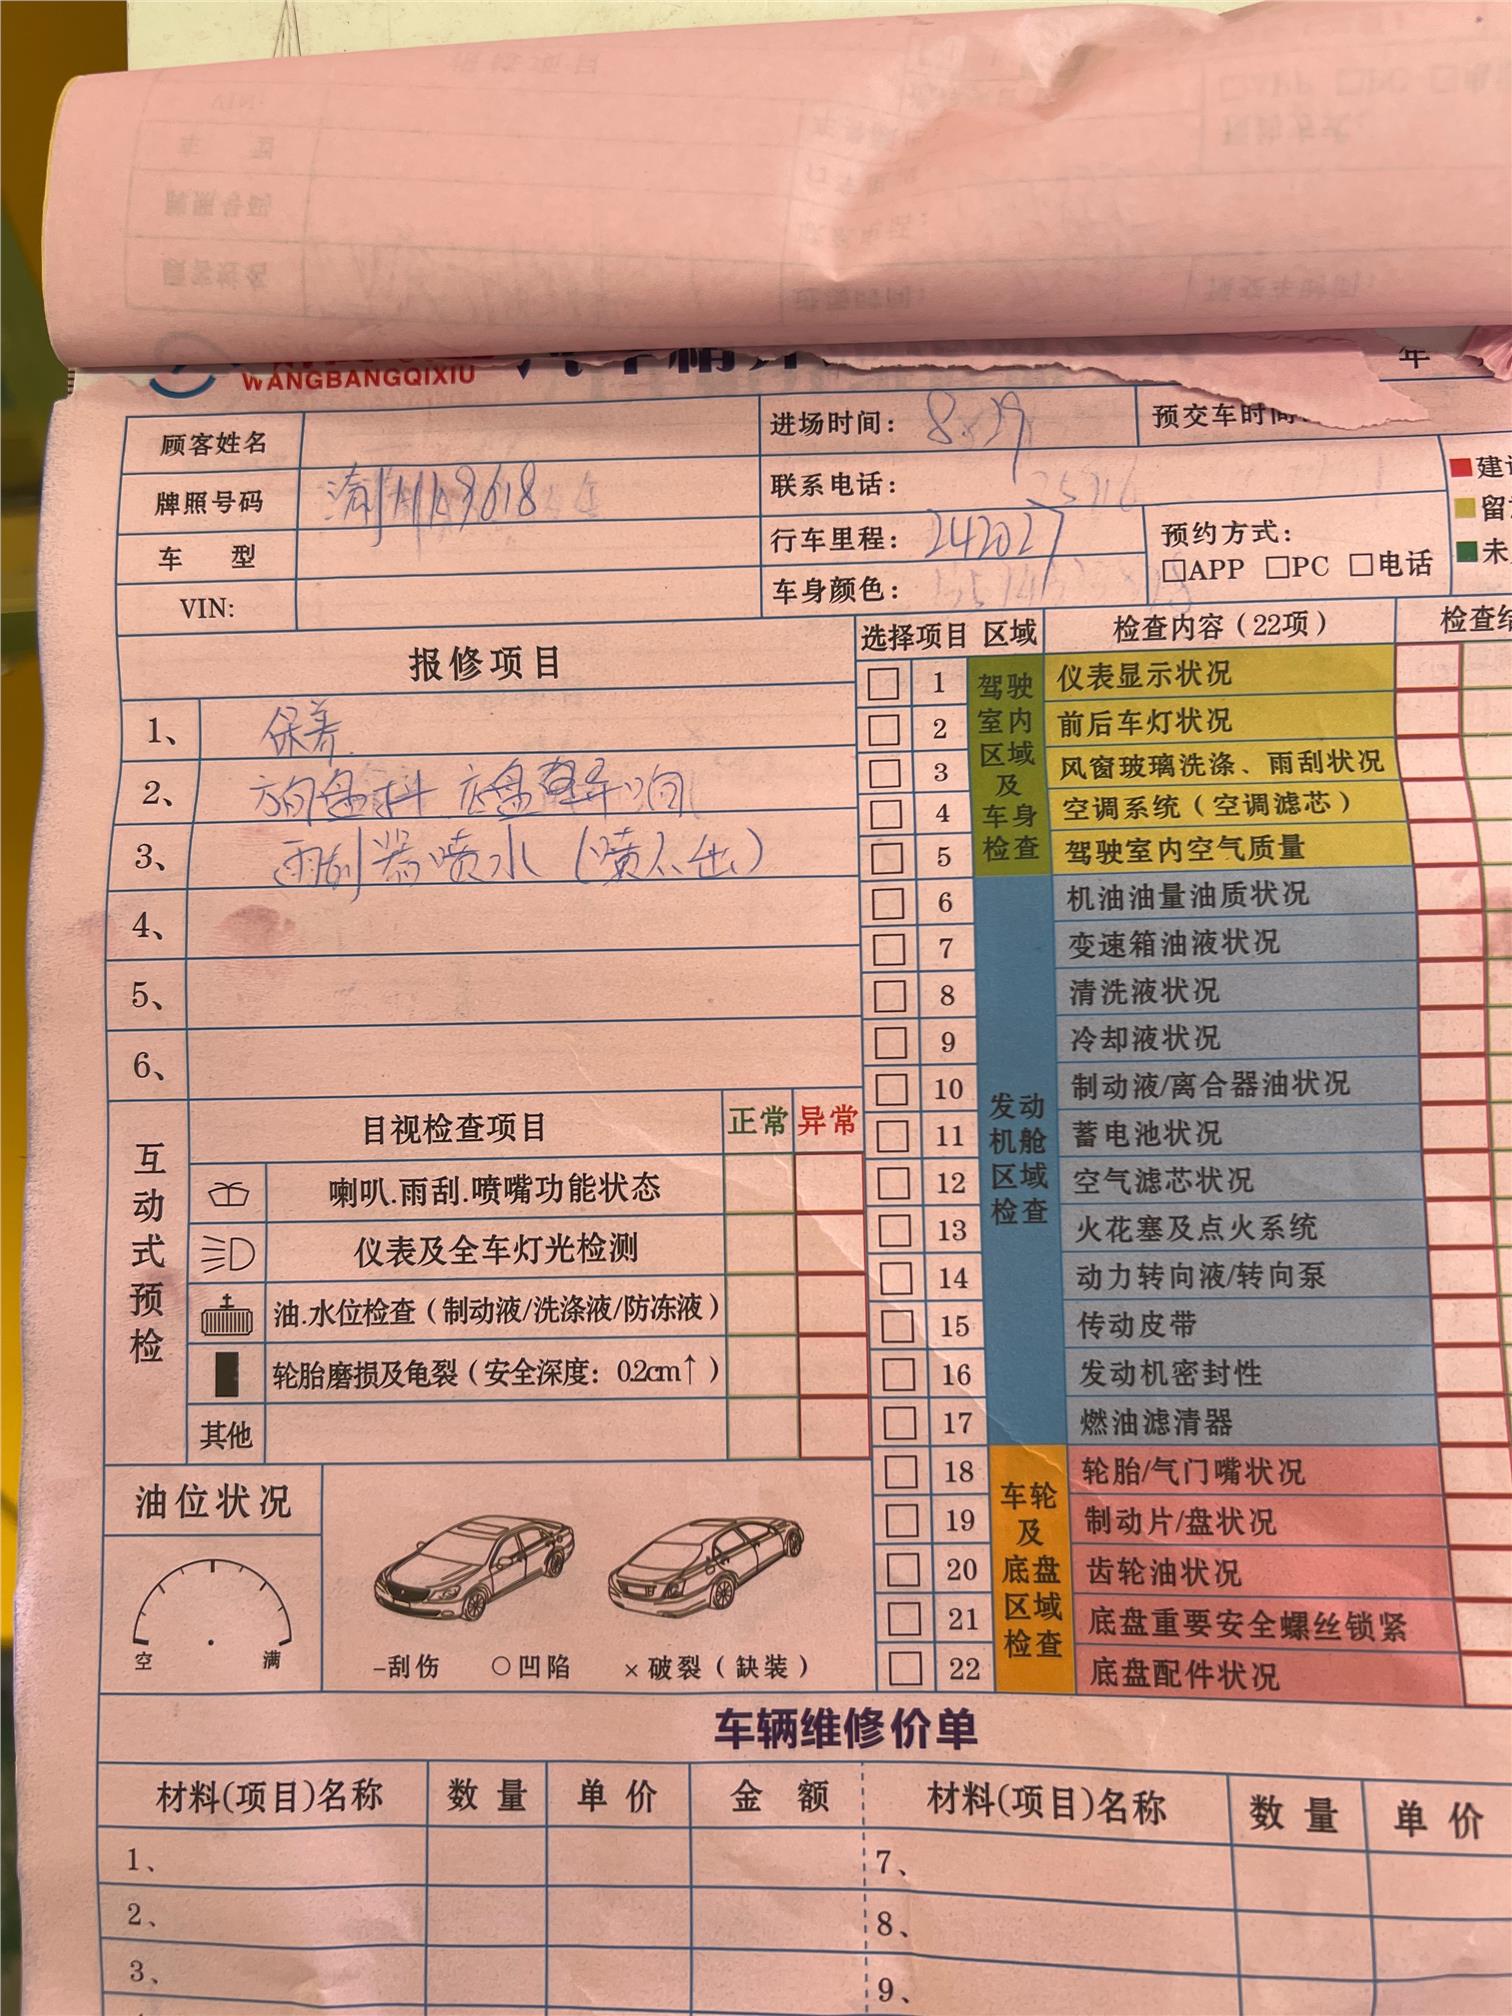 WANGBANGQIXIU
年
顾客姓名
进场时间： 8.29
预交车时间
牌照号码
联系电话：
车 型
行车里程： 242027
预约方式：
□APP □PC □电话
VIN:
车身颜色：
建
留
未
报修项目
1、 保养
2、 方向盘抖 底盘 响
3、 雨刮器喷水（喷不出）
4、
5、
6、
选择项目 区域 检查内容（22项） 检查结
驾驶室内区域及车身检查
1 仪表显示状况
2 前后车灯状况
3 风窗玻璃洗涤、雨刮状况
4 空调系统（空调滤芯）
5 驾驶室内空气质量
发动机舱区域检查
6 机油油量油质状况
7 变速箱油液状况
8 清洗液状况
9 冷却液状况
10 制动液/离合器油状况
11 蓄电池状况
12 空气滤芯状况
13 火花塞及点火系统
14 动力转向液/转向泵
15 传动皮带
16 发动机密封性
17 燃油滤清器
车轮及底盘区域检查
18 轮胎/气门嘴状况
19 制动片/盘状况
20 齿轮油状况
21 底盘重要安全螺丝锁紧
22 底盘配件状况
互动式预检
目视检查项目 正常 异常
喇叭.雨刮.喷嘴功能状态
仪表及全车灯光检测
油.水位检查（制动液/洗涤液/防冻液）
轮胎磨损及龟裂（安全深度：0.2cm↑）
其他
油位状况
空 满
–刮伤 ○凹陷 ×破裂（缺装）
车辆维修价单
材料(项目)名称 数量 单价 金额 材料(项目)名称 数量 单价
1、 7、
2、 8、
3、 9、